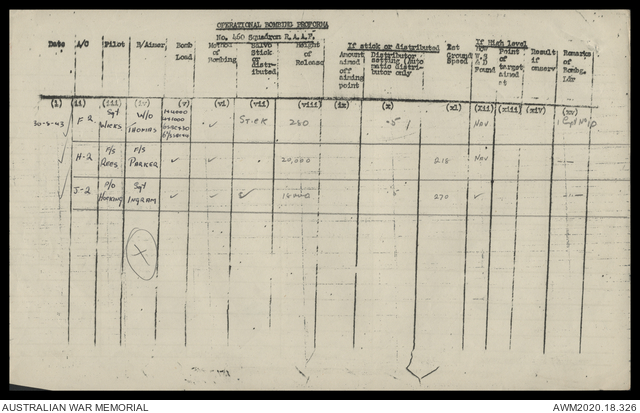 OPERATIONAL BOMBING PROFORMA
No. 460 Squadron R.A.A.F.
Date A/C Pilot B/Aimer Bomb Load Method of Bombing Salvo Stick or distributed. Height of Release If stick or distributed Amount aimed off aiming point Distributor setting (Auto matic distributor only Est Ground Speed If High level How W/V A D Found Point of target aimed at Result if observ Remarks of Bombg. Ldr
(i) (ii) (iii) (iv) (v) (vi) (vii) (viii) (ix) (x) (xi) (xii) (xiii) (xiv) (xv)
30-8-43 F-2 Sgt W/O THOMAS STICK Nav
H-2 F/S REES F/S PARKER 20,000 218 Nav
J-2 P/O HOCKING Sgt INGRAM 270
X
AUSTRALIAN WAR MEMORIAL
AWM2020.18.326